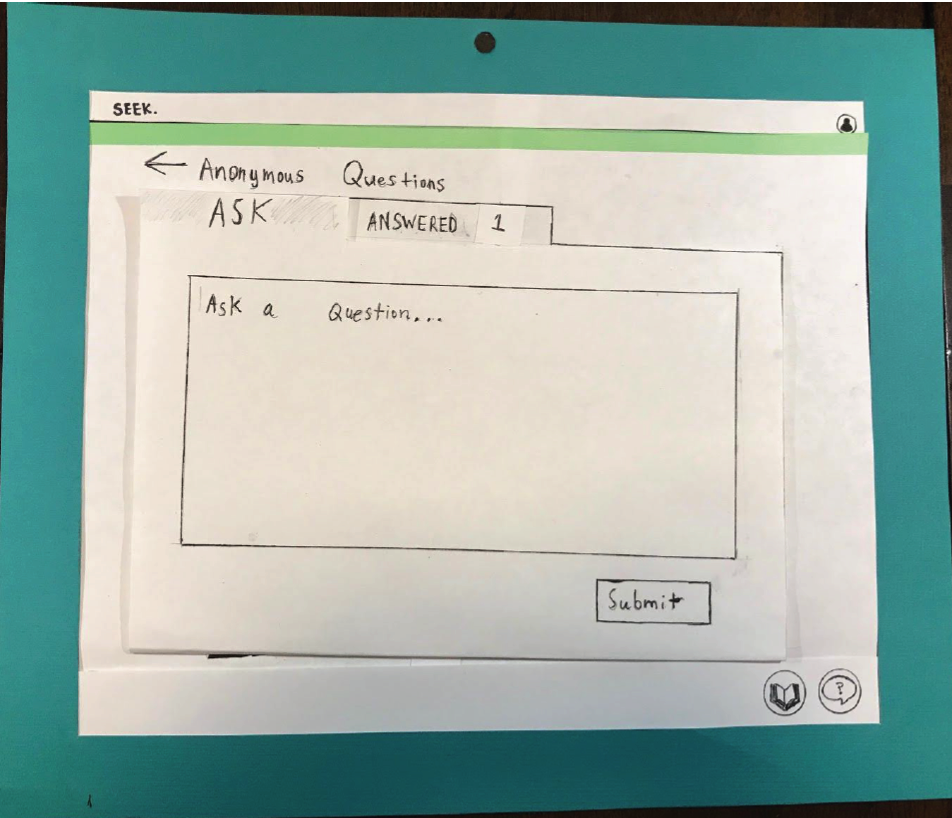 SEEK.
← Anonymous Questions
ASK ANSWERED 1
Ask a Question...
Submit
?